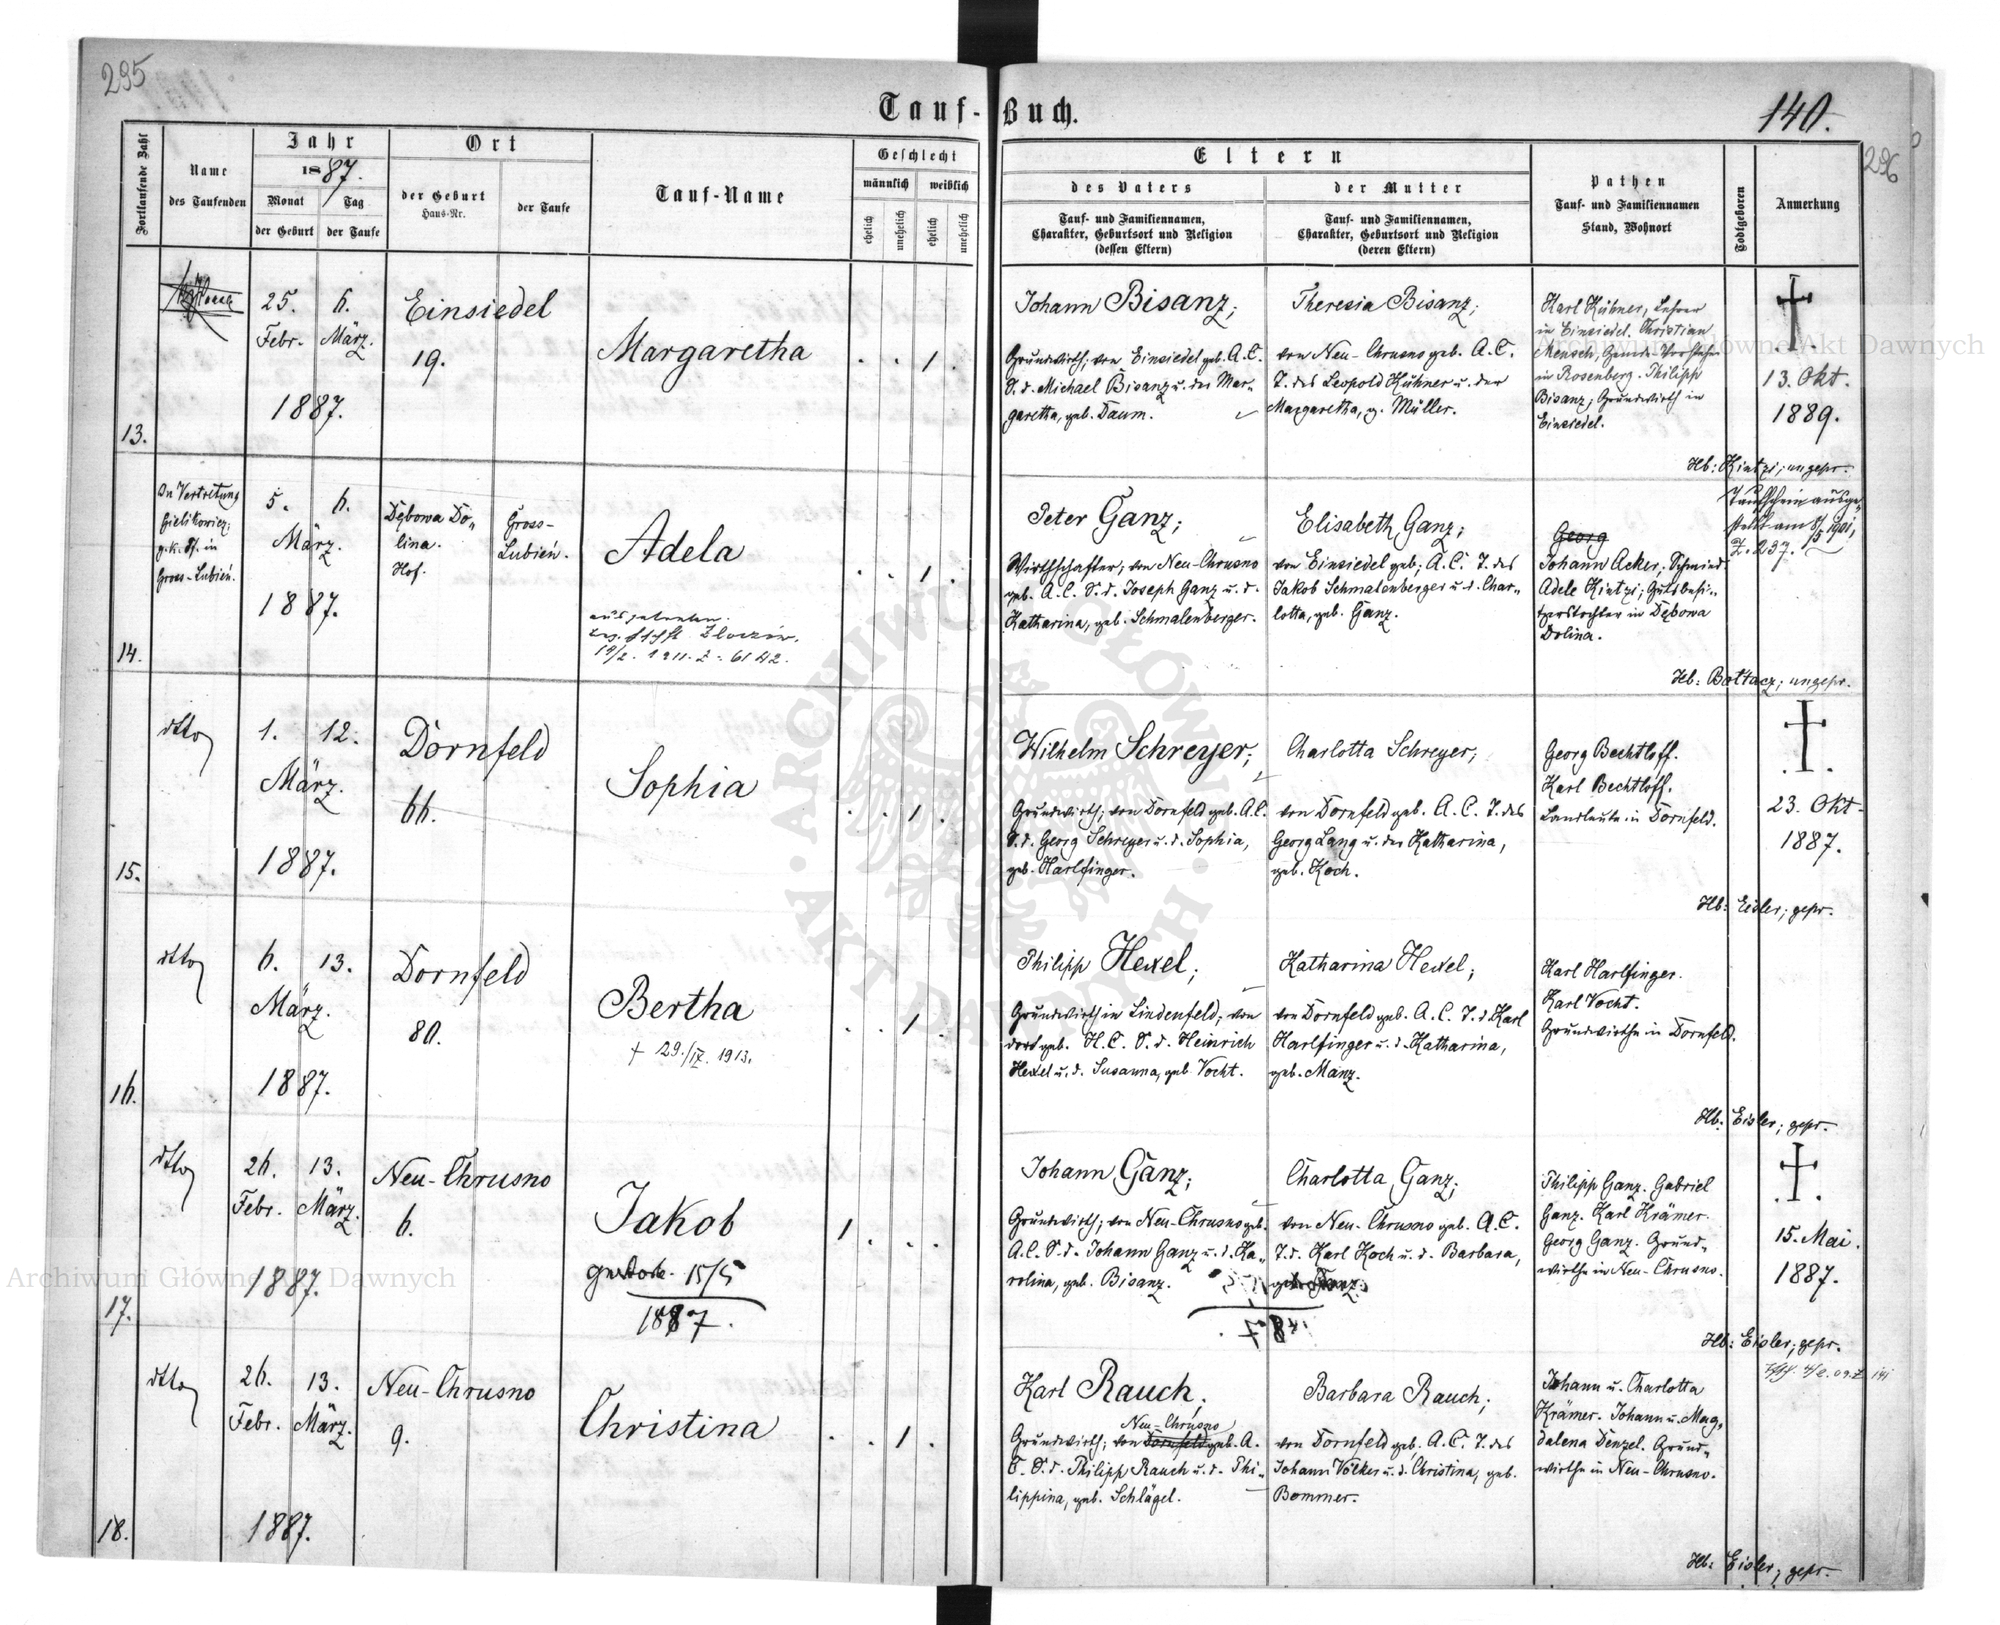 295
Tauf-Buch.
140.
296
Fortlaufende Zahl
Name
des Taufenden
Jahr
1887.
Monat
der Geburt
Tag
der Taufe
Ort
der Geburt
Haus-Nr.
der Taufe
Tauf-Name
Geschlecht
männlich
weiblich
ehelich
unehelich
ehelich
unehelich
Eltern
des Vaters
Tauf- und Familiennamen,
Charakter, Geburtsort und Religion
(dessen Eltern)
der Mutter
Tauf- und Familiennamen,
Charakter, Geburtsort und Religion
(deren Eltern)
Pathen
Tauf- und Familiennamen
Stand, Wohnort
Todtgeboren
Anmerkung
13.
25. 6.
Febr. März.
1887.
Einsiedel
19.
Margaretha
. . 1 .
Johann Bisanz;
Grundwirth; von Einsiedel geb. A.C.
S. d. Michael Bisanz u. der Mar-
garetha, geb. Daum.
Theresia Bisanz;
von Neu-Chrusno geb. A.C.
T. des Leopold Kühner u. der
Margaretha, g. Müller.
Karl Kühner, Lehrer
in Einsiedel. Christian
Mensch, Gemeinde-Vorsteher
in Rosenberg. Philipp
Bisanz, Grundwirth in
Einsiedel.
13. Okt.
1889.
Hb: Kintzi; ungepr.
14.
In Vertretung
Gielikowicz;
g.k. Pf. in
Gross-Lubień.
5. 6.
März.
1887.
Dębowa Do-
lina.
Hof.
Gross-
Lubień.
Adela
ausgetreten.
Bez. Hptft. Złoczów.
19/2. 1911. Z: 6142.
. . 1 .
Peter Ganz;
Wirthschafter; von Neu-Chrusno
geb. A.C. S. d. Joseph Ganz u. d.
Katharina, geb. Schmalenberger.
Elisabeth Ganz;
von Einsiedel geb; A.C. T. des
Jakob Schmalenberger u. d. Char-
lotta, geb. Ganz.
Georg
Johann Acker; Schmied.
Adele Kintzi; Gutsbesi-
tzerstochter in Dębowa
Dolina.
Taufschein ausge-
stellt am 8/5 1901,
Z. 237.
Hb: Bottacz; ungepr.
15.
dtto
1. 12.
März.
1887.
Dornfeld
66.
Sophia
. . 1 .
Wilhelm Schreyer;
Grundwirth; von Dornfeld geb. A.C.
S. d. Georg Schreyer u. d. Sophia,
geb. Harlfinger.
Charlotta Schreyer;
von Dornfeld geb. A.C. T. des
Georg Lang u. der Katharina,
geb. Koch.
Georg Bechtloff.
Karl Bechtloff.
Landleute in Dornfeld.
23. Okt.
1887.
Hb: Eisler; gepr.
16.
dtto
6. 13.
März.
1887.
Dornfeld
80.
Bertha
† 29./IX. 1913.
. . 1 .
Philipp Hexel;
Grundwirth in Lindenfeld; von
dort geb. H.C. S. d. Heinrich
Hexel u. d. Susanna, geb. Vocht.
Katharina Hexel;
von Dornfeld geb. A.C. T. d. Karl
Harlfinger u. d. Katharina,
geb. Manz.
Karl Harlfinger.
Karl Vocht.
Grundwirthe in Dornfeld.
Hb: Eisler; gepr.
17.
dtto
26. 13.
Febr. März.
1887.
Neu-Chrusno
6.
Jakob
gestorb. 15/5
1887.
1 . . .
Johann Ganz;
Grundwirth; von Neu-Chrusno geb.
A.C. S. d. Johann Ganz u. d. Ka-
rolina, geb. Bisanz.
Charlotta Ganz;
von Neu-Chrusno geb. A.C.
T. d. Karl Koch u. d. Barbara,
geb. Ganz.
Philipp Ganz. Gabriel
Ganz. Karl Krämer.
Georg Ganz. Grund-
wirthe in Neu-Chrusno.
15. Mai.
1887.
Hb: Eisler; gepr.
18.
dtto
26. 13.
Febr. März.
1887.
Neu-Chrusno
9.
Christina
. . 1 .
Karl Rauch;
Neu-Chrusno
Grundwirth; von Dornfeld geb. A.
C. S. d. Philipp Rauch u. d. Phi-
lippina, geb. Schlägel.
Barbara Rauch;
von Dornfeld geb. A.C. T. des
Johann Völker u. d. Christina, geb.
Bommer.
Johann u. Charlotta
Krämer. Johann u. Mag-
dalena Denzel. Grund-
wirthe in Neu-Chrusno.
Hb: Eisler; gepr.
Archiwum Główne Akt Dawnych
Archiwum Główne Akt Dawnych
ARCHIWUM GŁÓWNE AKT DAWNYCH